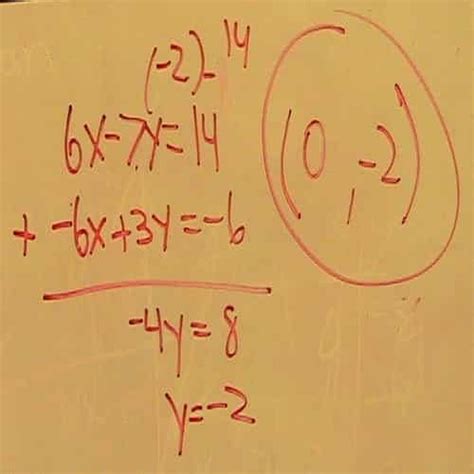 (-2)-14
6x-7y=14
+ -6x+3y=-6
-4y=8
y=-2
(0,-2)